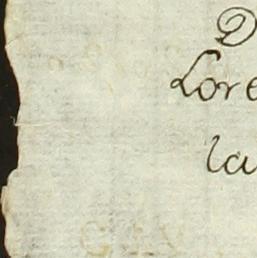 D
Lore
la